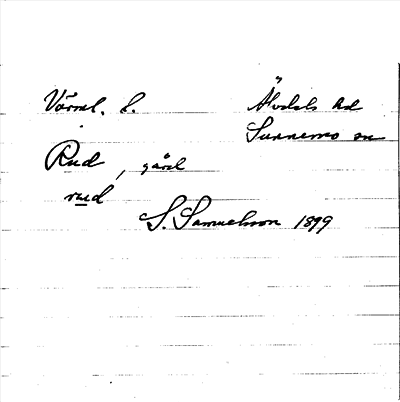 Värml. l. Älvdals hd
Sunnemo sn
Rud, gård
rud
S. Samuelsson 1899